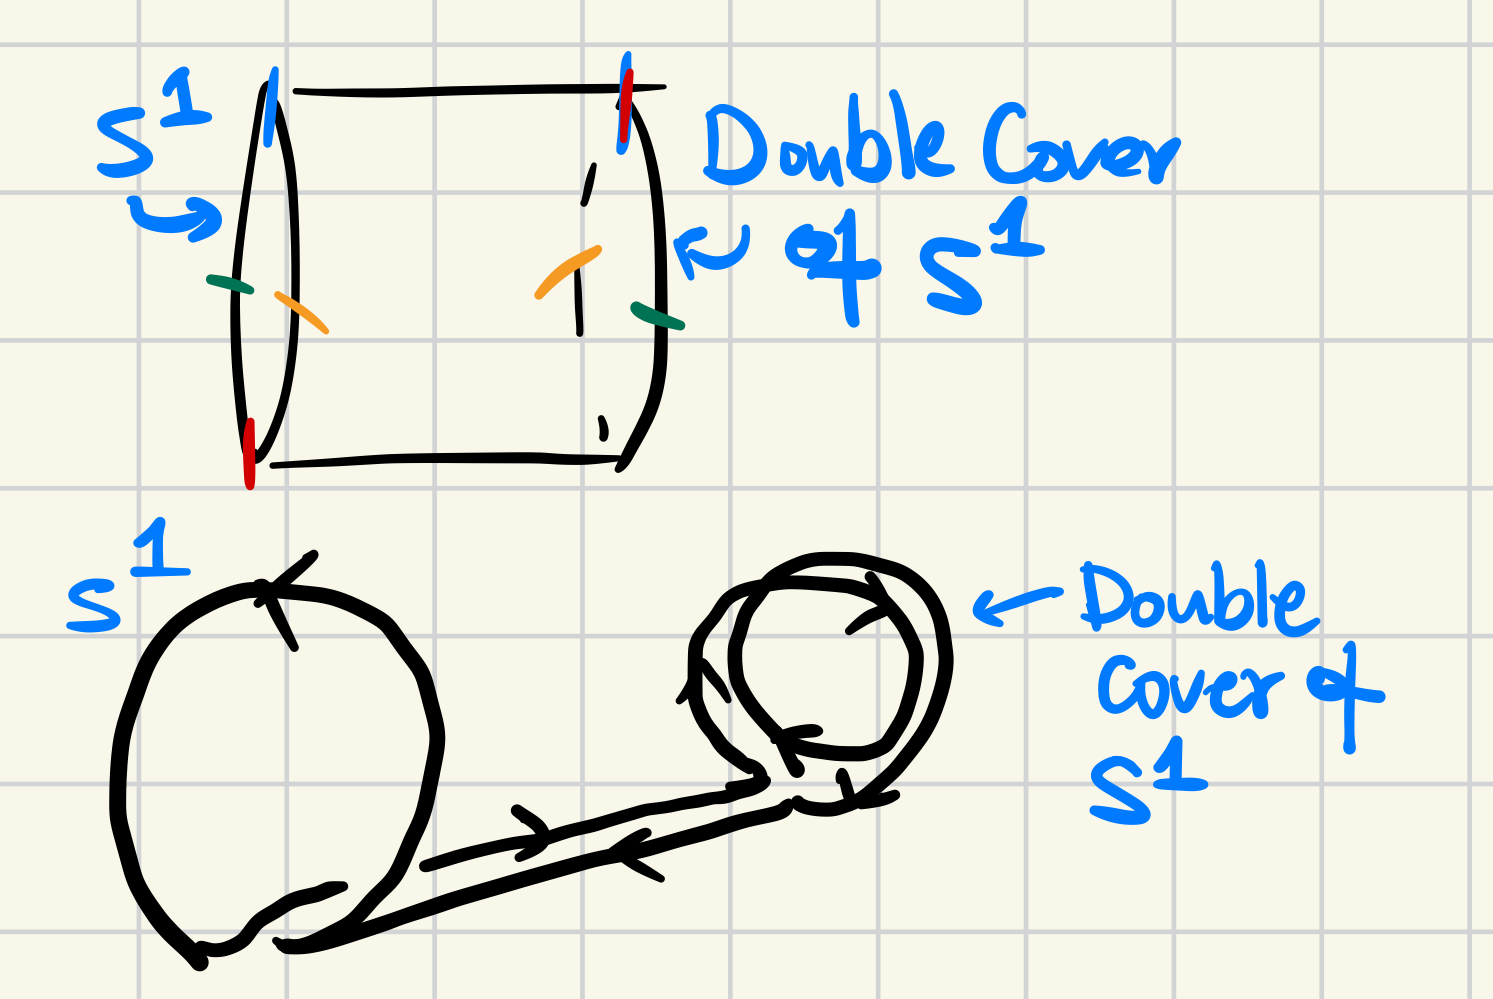 S¹
Double Cover
of S¹
S¹
Double
Cover of
S¹